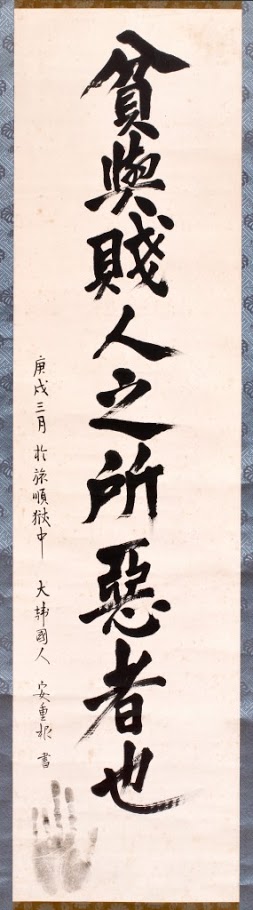 貧與賤人之所惡者也
庚戌三月 於旅順獄中 大韓國人 安重根 書